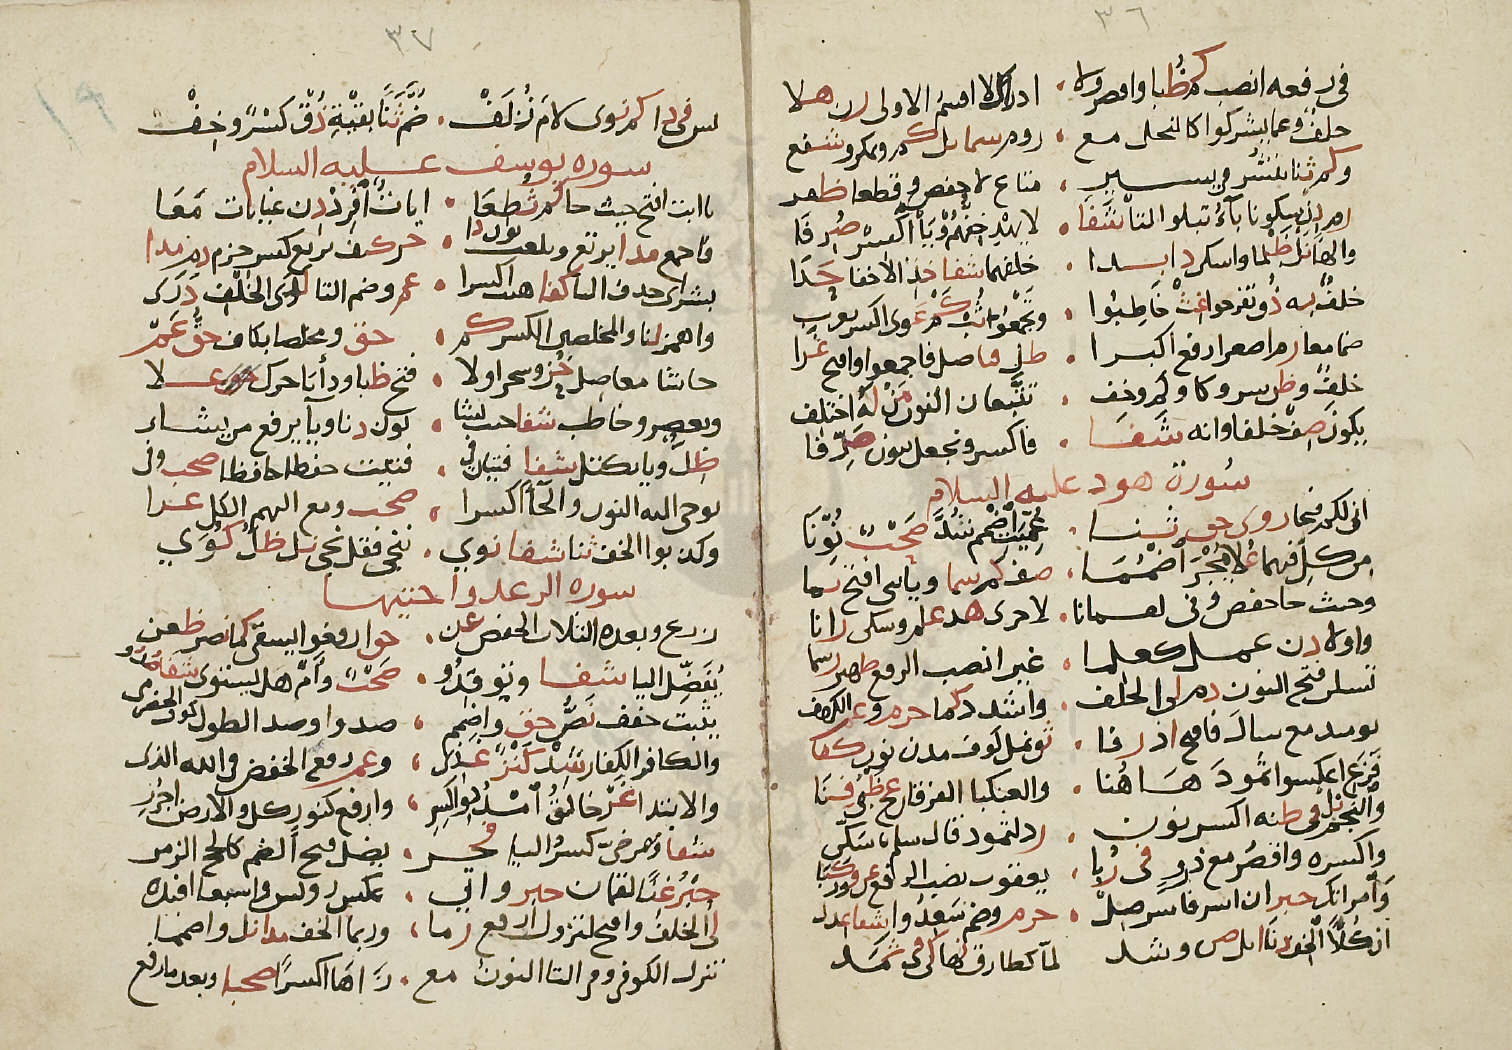 ٣٦
في رفعه انصب كم ظبا واقصر ولا ، ادراك لا اقسم الاولى زن هلا
خلف وعما يشركوا كالنحل مع ، روم سما نل كم ويمكرو شفع
وكم ثنا ينشر في يسير ، متاع لا حفص وقطعا ظفر
رم دن سكونا باء تبلوا التا شفا ، لا يهد خفهم ويا اكسر صرفا
والهاء نل ظلما واسكن ذا بدا ، خلفهما شفا خذ الاخفا حدا
خلف به ذق تفرحوا غث خاطبوا ، وتجمعوا ثب كم غوى اكسر يعزب
ضما معا رم اصغر ارفع اكبرا ، ظل فتا صل فاجمعوا وافتح غرا
خلف وظن سروكا وكم وخف ، تتبعان النون من له اختلف
يكون صف خلفا وانه شفا ، فاكسر ونجعل بنون صرفا
سورة هود عليه السلام
اني لكم فتحا روى حق ثنا ، عميت اضمم شد صحب نونا
من كل فيهما علا مجر اضمما ، صف كم سما ويا بني افتح نما
وحيث جا حفص وفي لقمانا ، لاخرى هد علم وسكن زانا
واولا دن عمل كعلما ، غير انصب الرفع ظهير رسما
تسلن فتح النون دم لي الخلف ، واشدد كما حرم وعم الكهف
يومئذ مع سال فافتح اذ رفا ، ثق نمل كوف مدن نون كفا
فزع اعكسوا ثمود هاهنا ، والعنكبا الفرقان عج ظبي فنا
والنجم نل في ظنه اكسر نون ، رد لثمود قال سلم سكن
واكسره واقصر مع ذرو في ربا ، يعقوب نصب الرفع عن فوز كبا
وامراتك حبر ان اسر فاسر صل ، حرم وضم سعدوا شفا عدل
ان كلا الخف دنا اتل صن وشد لما كطارق نهى كن في ثمد
٣٧
١٩
يس في ذا كم نوى لام زلف ، ضم ثنا بقية ذق كسر وخف
سورة يوسف عليه السلام
يا ابت افتح حيث جا كم ثطعا ، ايات افرد دن غيابات معا
فاجمع مدا يرتع ويلعب نون دا ، حز كيف يرتع كسر جزم دم مدا
بشراي حذف اليا كفا هيت اكسرا ، عم وضم التا لدى الخلف درى
واهمز لنا والمخلصين الكسر كم ، حق ومخلصا بكاف حق عم
حاشا معا صل حز وسجن اولا ، افتح ظبا ودأبا حرك علا
ويعصرو خاطب شفا حيث يشا ، نون دنا وياء يرفع من يشاء
ظل ويا نكتل شفا فتيان في ، فتيت حفظا حافظا صحب وفي
يوحى اليه النون والحاء اكسرا ، صحب ومع اليهم الكل عرا
وكذبوا الخف ثنا شفا نوى ، ننجي فقل نجي نل ظل كوي
سورة الرعد واختيها
زرع وبعده الثلاث الخفض عن ، حق ارفعوا يسقى كما نصر ظعن
يفضل اليا شفا ويوقدو ، صحب وام هل يستوي شفا صدو
يثبت خفف نص حق واضمم ، صدوا وصد الطول كوف الحضرمي
والكافر الكفار شد كنز غذي ، وعم رفع الخفض في الله الذي
والابتدا غر خالق امدد واكسر ، وارفع كنور كل والارض اجرر
شفا ومصرخي كسر اليا فخر ، يضل فتح الضم كالحج الزمر
حبر غنا لقمان حبر واتى ، عكس رويس واشبعا افئدة
لي الخلف وافتح لتزول ارفع رما ، وربما الخف مدا نل واضمما
تنزل الكوفي وفي التا النون مع ، زاها اكسرا صحبا وبعد ما رفع